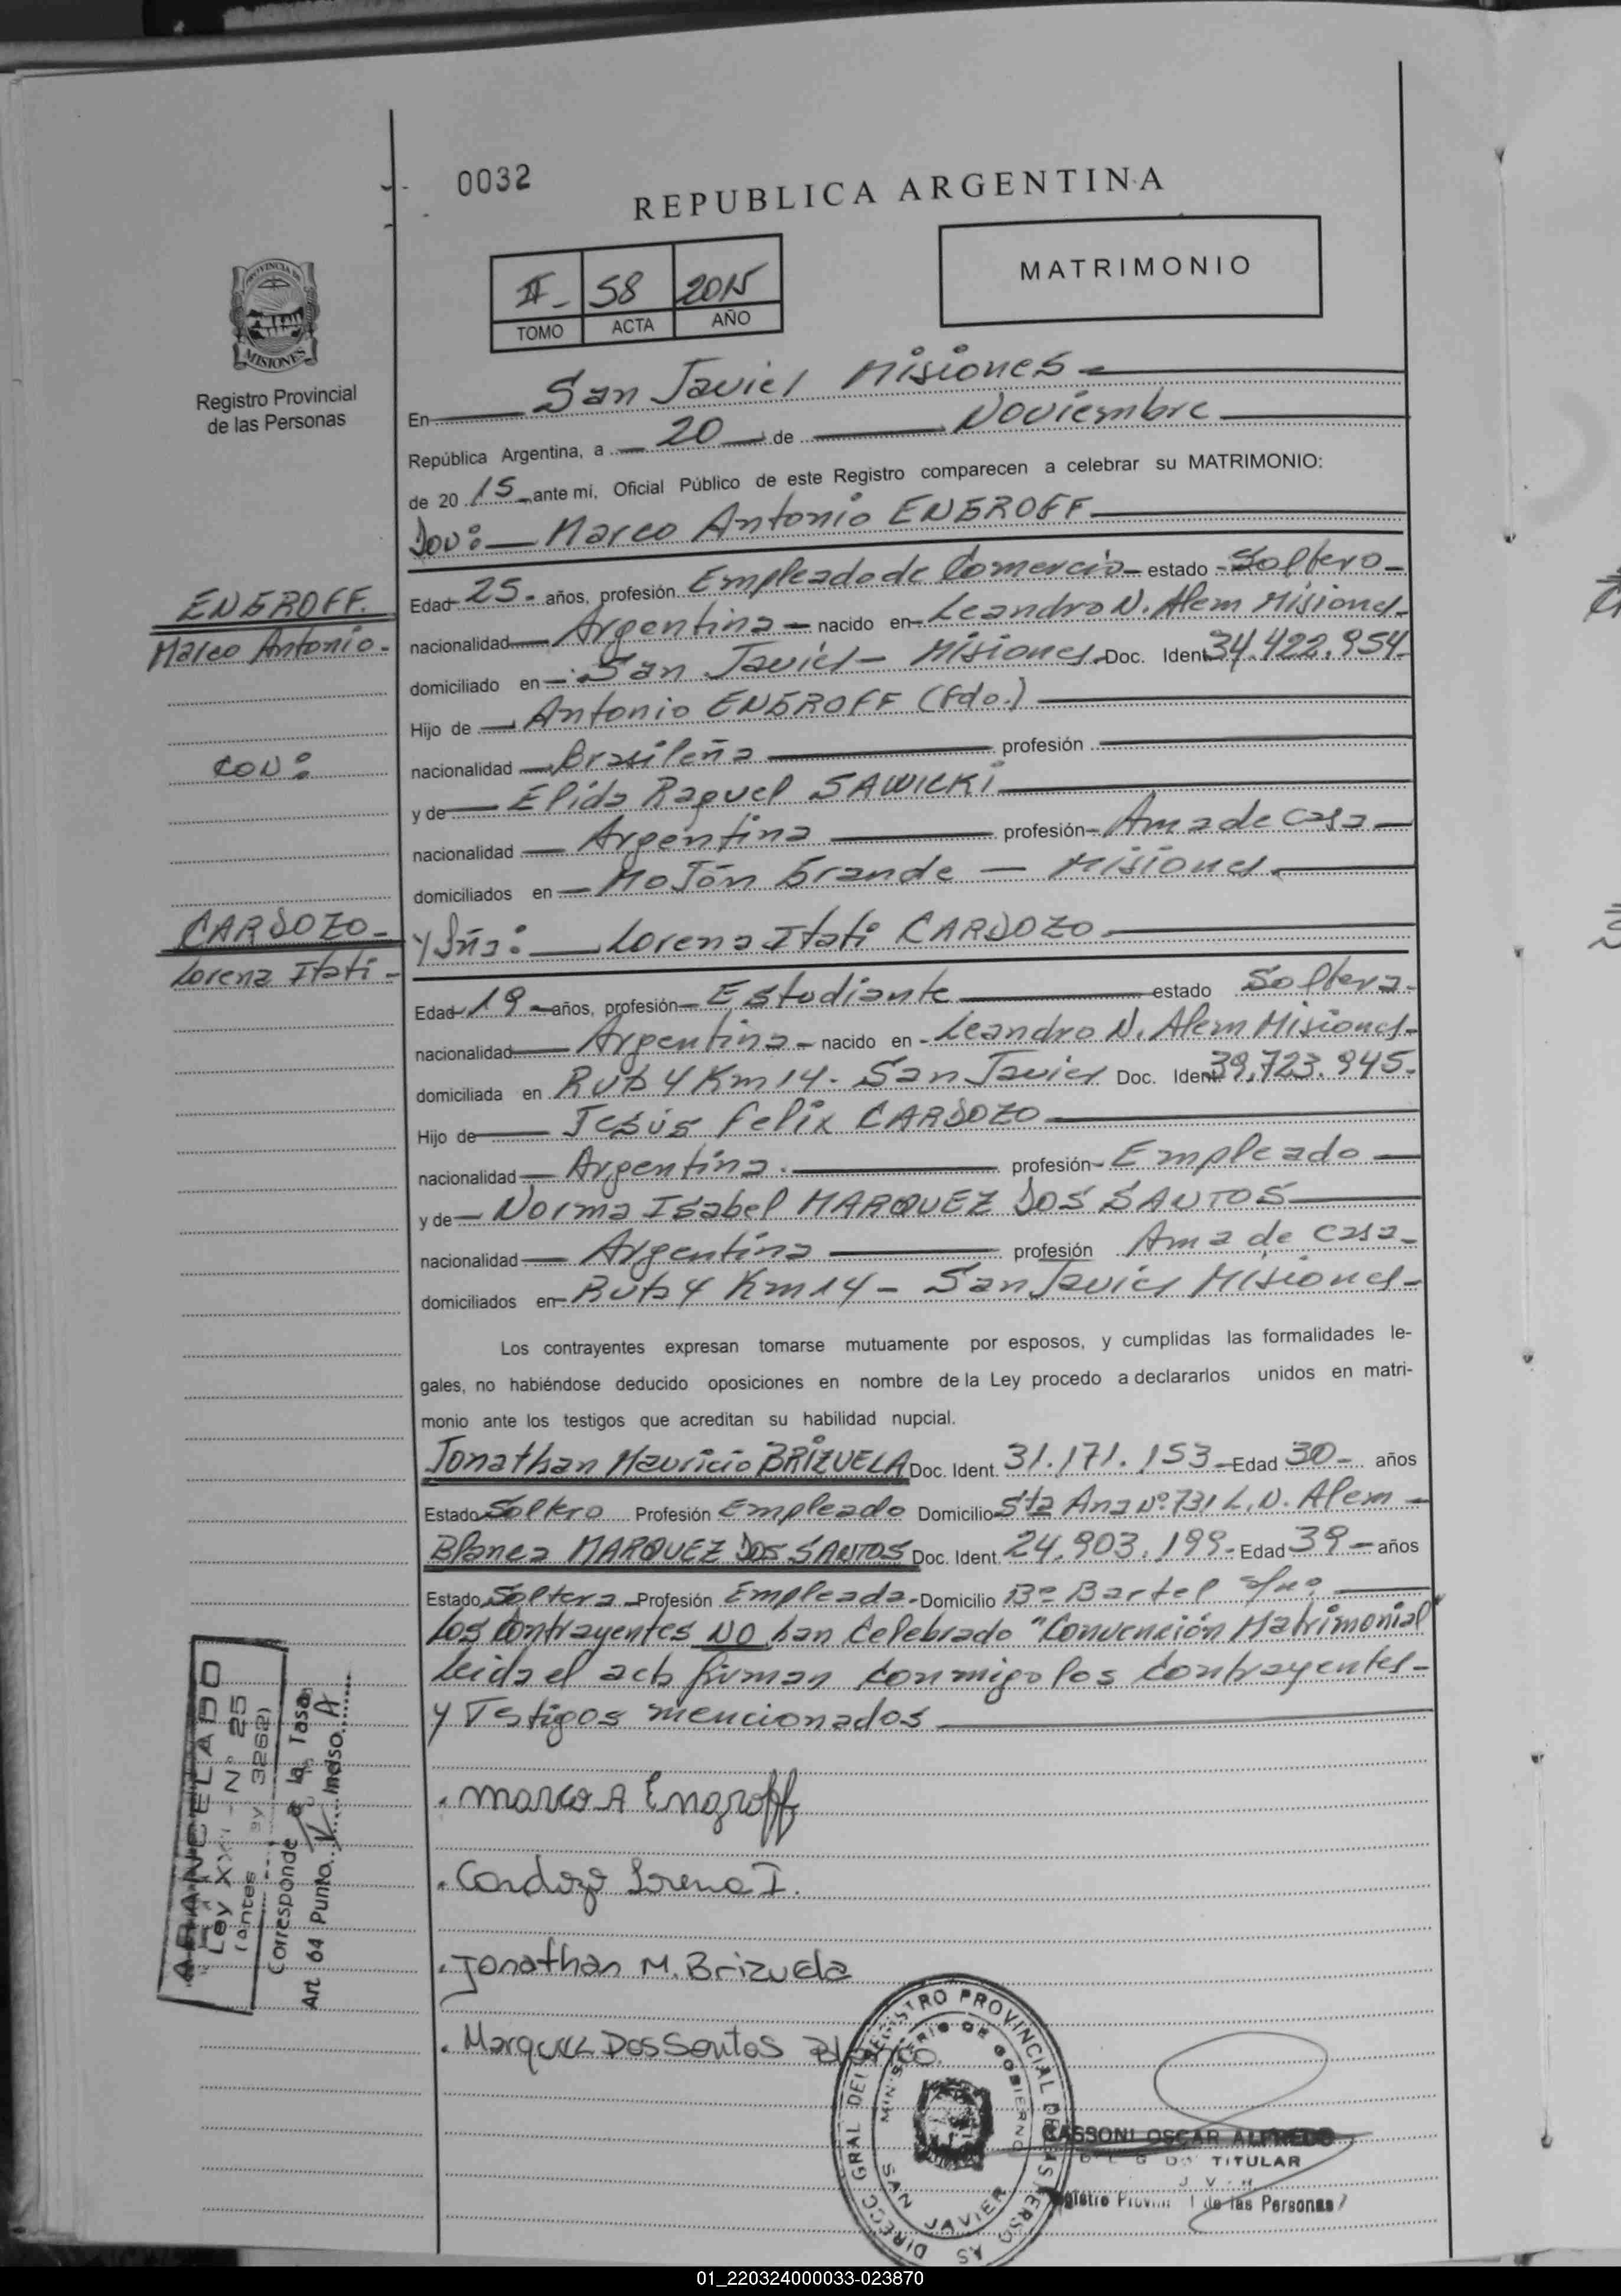 0032
REPUBLICA ARGENTINA
II- 58 2015
TOMO ACTA AÑO
MATRIMONIO
PROVINCIA DE
MISIONES
Registro Provincial
de las Personas
En San Javier Misiones
República Argentina, a 20 de Noviembre
de 20 15 ante mi, Oficial Público de este Registro comparecen a celebrar su MATRIMONIO:
Don: Marco Antonio ENGROFF
ENGROFF.
Marco Antonio-
CON:
CARDOZO-
Lorena Itati-
Edad 25- años, profesión Empleado de Comercio estado Soltero
nacionalidad Argentina nacido en Leandro N. Alem Misiones-
domiciliado en San Javier - Misiones. Doc. Ident 34.422.954-
Hijo de Antonio ENGROFF (Fdo.)
nacionalidad Brasileña profesión
y de Elida Raquel SAWICKi
nacionalidad Argentina profesión Ama de casa
domiciliados en Mojón Grande - Misiones.
y Sña: Lorena Itati CARDOZO
Edad 19 años, profesión Estudiante estado Soltera-
nacionalidad Argentina nacido en Leandro N. Alem Misiones-
domiciliada en Ruta 4 Km 14- San Javier Doc. Ident. 39.723.945-
Hijo de Jesús Felix CARDOZO
nacionalidad Argentina. profesión Empleado
y de Norma Isabel MARQUEZ DOS SANTOS
nacionalidad Argentina profesión Ama de casa-
domiciliados en Ruta 4 Km 14 - San Javier Misiones-
Los contrayentes expresan tomarse mutuamente por esposos, y cumplidas las formalidades le-
gales, no habiéndose deducido oposiciones en nombre de la Ley procedo a declararlos unidos en matri-
monio ante los testigos que acreditan su habilidad nupcial.
Jonathan Mauricio BRIZUELA Doc. Ident. 31.171.153- Edad 30- años
Estado Soltero Profesión Empleado Domicilio Sta Ana Nº 731 L.N. Alem
Blanca MARQUEZ DOS SANTOS Doc. Ident. 24.903.199- Edad 39- años
Estado Soltera Profesión Empleada- Domicilio Bº Bartel s/nº
Los Contrayentes NO han Celebrado "Convención Matrimonial
leida el acta firman conmigo los contrayentes-
y Testigos mencionados
ARANCELADO
Ley XXII - Nº 25
(antes Ley 3262)
Corresponde a la Tasa
Art 64 Punto V Inciso A
. marco A Engroff
. Cardozo Lorena I.
. Jonathan M. Brizuela
. Marquez Dos Santos Blanca
DIRECC GRAL DEL REGISTRO PROVINCIAL DE LAS PERSONAS
MINISTERIO DE GOBIERNO
SAN JAVIER
CASSONI OSCAR ALFREDO
TITULAR
Registro Provincial de las Personas
01_220324000033-023870